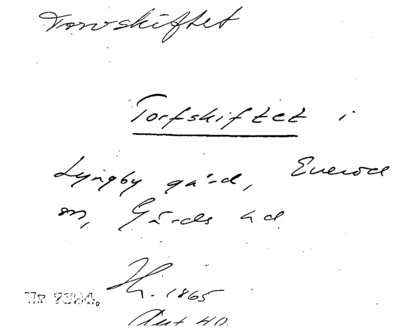 Torvskiftet
Torfskiftet i
Lyngby gård, Everöd
sn, Gärds hd
H. 1865
Nr 7384.